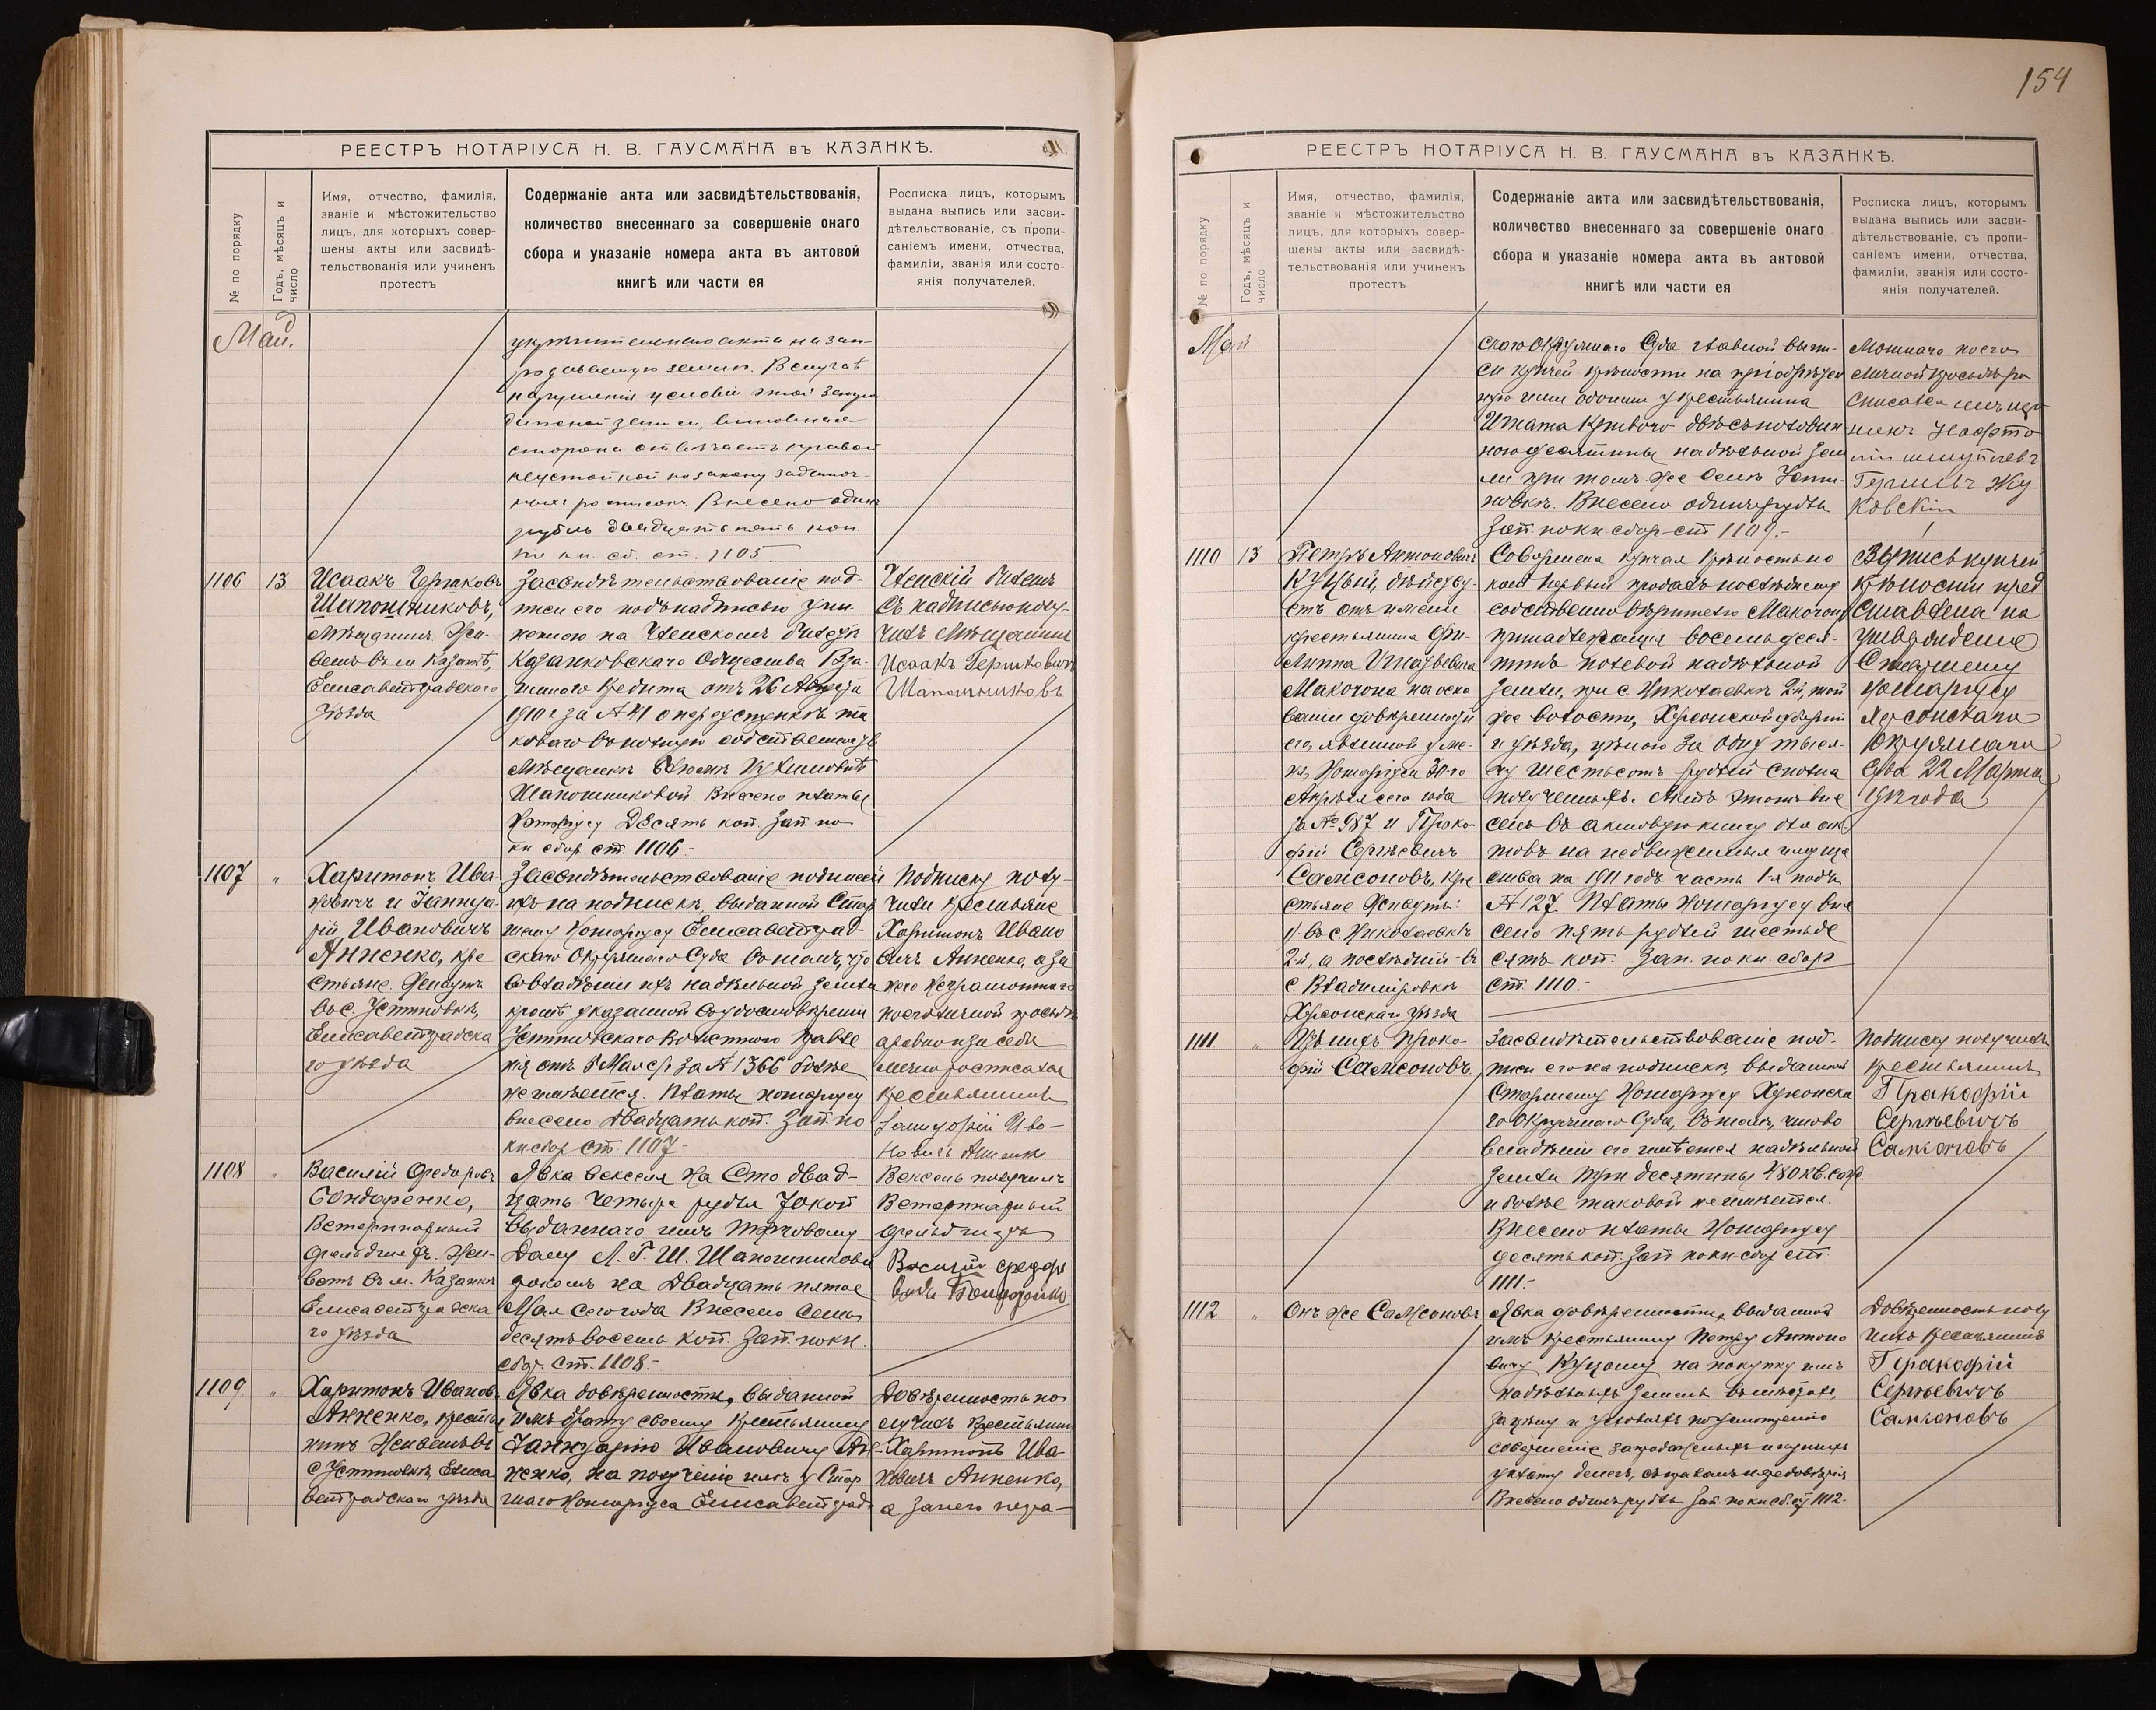 РЕЕСТРЪ НОТАРІУСА Н. В. ГАУСМАНА въ КАЗАНКѢ.
№ по порядку
Годъ, мѣсяцъ и
число
Имя, отчество, фамилія,
званіе и мѣстожительство
лицъ, для которыхъ совер-
шены акты или засвидѣ-
тельствованія или учиненъ
протестъ
Содержаніе акта или засвидѣтельствованія,
количество внесеннаго за совершеніе онаго
сбора и указаніе номера акта въ актовой
книгѣ или части ея
Росписка лицъ, которымъ
выдана выпись или засви-
дѣтельствованіе, съ пропи-
саніемъ имени, отчества,
фамиліи, званія или состо-
янія получателей.
Май.
акта на зап-
землю. В случаѣ
нарушенія условій этой
сторона отвѣчаетъ
по закону задаточ-
Внесено один
рубль двадцать пять коп.
по кн. сб. ст. 1105
1106
13
Исаакъ
Шапошниковъ,
Мѣщанинъ. Жи-
Казанкѣ,
Елисаветградскаго
уѣзда
Засвидѣтельствованіе под-
писи его подъ надписью учи-
ненною на Членскомъ билетѣ
Казанковскаго Общества Вза-
имнаго Кредита отъ 26
1910 г за №
въ полную собственность
Мѣщанкѣ
Шапошниковой. Внесено платы
Нотаріусу Десять коп. Зап. по
кн сбор. ст. 1106.-
Членскій билетъ
съ надписью полу-
чилъ Мѣщанинъ
Исаакъ
Шапошниковъ
1107
"
Харитонъ Ива-
новичъ и Іаннуа-
рій Ивановичъ
Анненко, кре
стьяне. Живутъ
въ с. Устиновкѣ,
Елисаветградска
го уѣзда
Засвидѣтельствованіе подписей
ихъ на подпискѣ, выданной Стар
шему Нотаріусу Елисаветград-
скаго Окружнаго Суда въ томъ, что
во владѣніи ихъ надѣльной земли
кромѣ указанной въ удостовѣреніи
Устиновскаго Волостного Правле
нія отъ Мая с/г за № 1366 болѣе
не имѣется. Платы нотаріусу
внесено Двадцать коп. Зап. по
кн сбор ст. 1107-
Подписку полу-
чили крестьяне
Харитонъ Ивано
вичъ Анненко, а за
него неграмотнаго
по его личной просьбѣ
а равно и за себя
лично росписался
крестьянинъ
Ива-
новичъ Анненко
1108
"
Василій Федоровъ
Бондаренко,
Ветеринарный
Фельдшеръ. Жи-
ветъ въ м. Казанкѣ
Елисаветградска
го уѣзда
Явка векселя на Сто двад-
цать четыре рубля 70 коп
выданнаго имъ Торговому
Дому Л. Г. Ш. Шапошникову
срокомъ на Двадцать пятое
Мая сего года Внесено Семь
десятъ восемь коп. Зап. по кн.
сбор. ст. 1108.-
Вексель получилъ
Ветеринарный
фельдшеръ
Василій Федоро
Бондаренко
1109
"
Харитонъ Иванов.
Анненко, крестья
нинъ Живетъ въ
с Устиновкѣ, Елиса
ветградскаго уѣзда
Явка довѣренности, выданной
имъ брату своему крестьянину
Іаннуарію Ивановичу Ан-
ненко, на полученіе имъ у Стар
шаго Нотаріуса Елисаветград-
Довѣренность по-
лучилъ крестьянин
Харитонъ Ива-
новичъ Анненко,
а за него негра-
154
РЕЕСТРЪ НОТАРІУСА Н. В. ГАУСМАНА въ КАЗАНКѢ.
№ по порядку
Годъ, мѣсяцъ и
число
Имя, отчество, фамилія,
званіе и мѣстожительство
лицъ, для которыхъ совер-
шены акты или засвидѣ-
тельствованія или учиненъ
протестъ
Содержаніе акта или засвидѣтельствованія,
количество внесеннаго за совершеніе онаго
сбора и указаніе номера акта въ актовой
книгѣ или части ея
Росписка лицъ, которымъ
выдана выпись или засви-
дѣтельствованіе, съ пропи-
саніемъ имени, отчества,
фамиліи, званія или состо-
янія получателей.
Май
скаго Окружнаго Суда главной выпи-
си купчей крѣпости на пріобрѣтен
ную ими обоими у крестьянина
Игната Кривого двѣ съ половин
ною десятины надѣльной зем
ли при томъ же селѣ Усти-
новкѣ. Внесено одинъ рубль
Зап. по кн сбор-ст 1109.-
мотнаго по его
личной просьбѣ ро
списался мѣща
нинъ
Гершевъ Жу
ковскій
1110
13
Петръ Антоновичъ
Куцый, дѣйству-
етъ отъ имени
крестьянина Фи-
липпа Игнатьевича
Макогона на осно
ваніи довѣренности
его явленной у ме-
ня, Нотаріуса 30-го
Апрѣля сего года
за № 987 и Проко-
фій Сергѣевичъ
Самсоновъ, кре
стьяне. Живутъ:
1й въ с. Николаевкѣ
2й, а послѣдній въ
с. Владиміровкѣ
Херсонскаго уѣзда
Совершена купчая крѣпость по
коей первый продалъ послѣднему
собственно вѣрителю Макогону
принадлежащія восемь деся-
тинъ полевой надѣльной
земли, при с. Николаевкѣ 2й, той
же волости, Херсонской губерніи
и уѣзда, цѣною за одну тыся-
чу шестьсотъ рублей сполна
полученныхъ. Актъ этотъ вне
сенъ въ актовую книгу для ак-
товъ на недвижимыя имуще
ства на 1911 годъ часть 1-я подъ
№ 127. Платы Нотаріусу вне
сено пять рублей шестьде
сятъ коп. Зап. по кн. сбор
ст. 1110.-
Выпись купчей
крѣпости пред
ставлена на
утвержденіе
Старшему
Нотаріусу
Херсонскаго
Окружнаго
Суда 22 Марта
1912 года
1111
"
Изъ нихъ Проко-
фій Самсоновъ,
Засвидѣтельствованіе под-
писи его на подпискѣ, выданной
Старшему Нотаріусу Херсонска
го Окружнаго Суда, въ томъ, что во
владѣніи его имѣется надѣльной
земли три десятины 480 кв. саж.
и болѣе таковой не имѣется.
Внесено платы Нотаріусу
десять коп. Зап по кн сбор ст.
1111.-
Подписку получилъ
крестьянинъ
Пракофій
Сергѣевичъ
Самсоновъ
1112
"
Онъ же Самсоновъ
Явка довѣренности, выданной
имъ крестьянину Петру Антоно
вичу Куцому на покупку имъ
надѣльныхъ земель
за цѣну и условіяхъ по усмотрѣнію
совершеніе
уплату денегъ, съ правомъ передовѣрія
Внесено одинъ рубль Зап. по кн сб. ст 1112.
Довѣренность полу
чилъ крестьянинъ
Пракофій
Сергѣевичъ
Самсоновъ